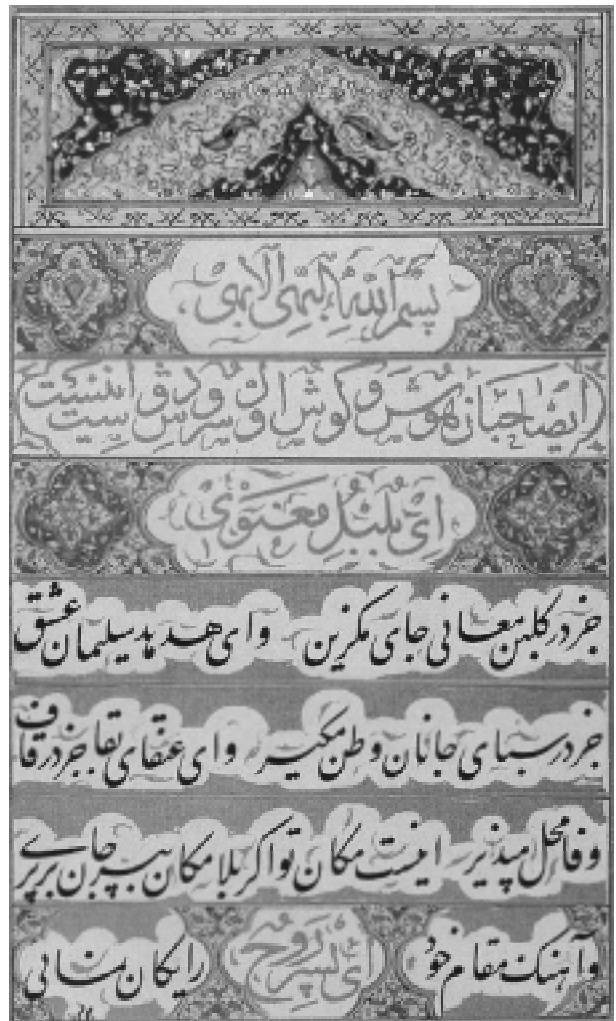 بسم الله البهی الابهی
ایصاحبان هوش و گوش اول سروش دوست اینست
ای بلبل معنوی
جز در کلبن معانی جای مکزین و ای هدهد سلیمان عشق
جز در سبای جانان وطن مکیر و ای عنقای بقا جز در قاف
وفا محل مپذیر اینست مکان تو اکر بلامکان بپر جان بر پری
و آهنک مقام خود رایکان نمائی ای پسر روح